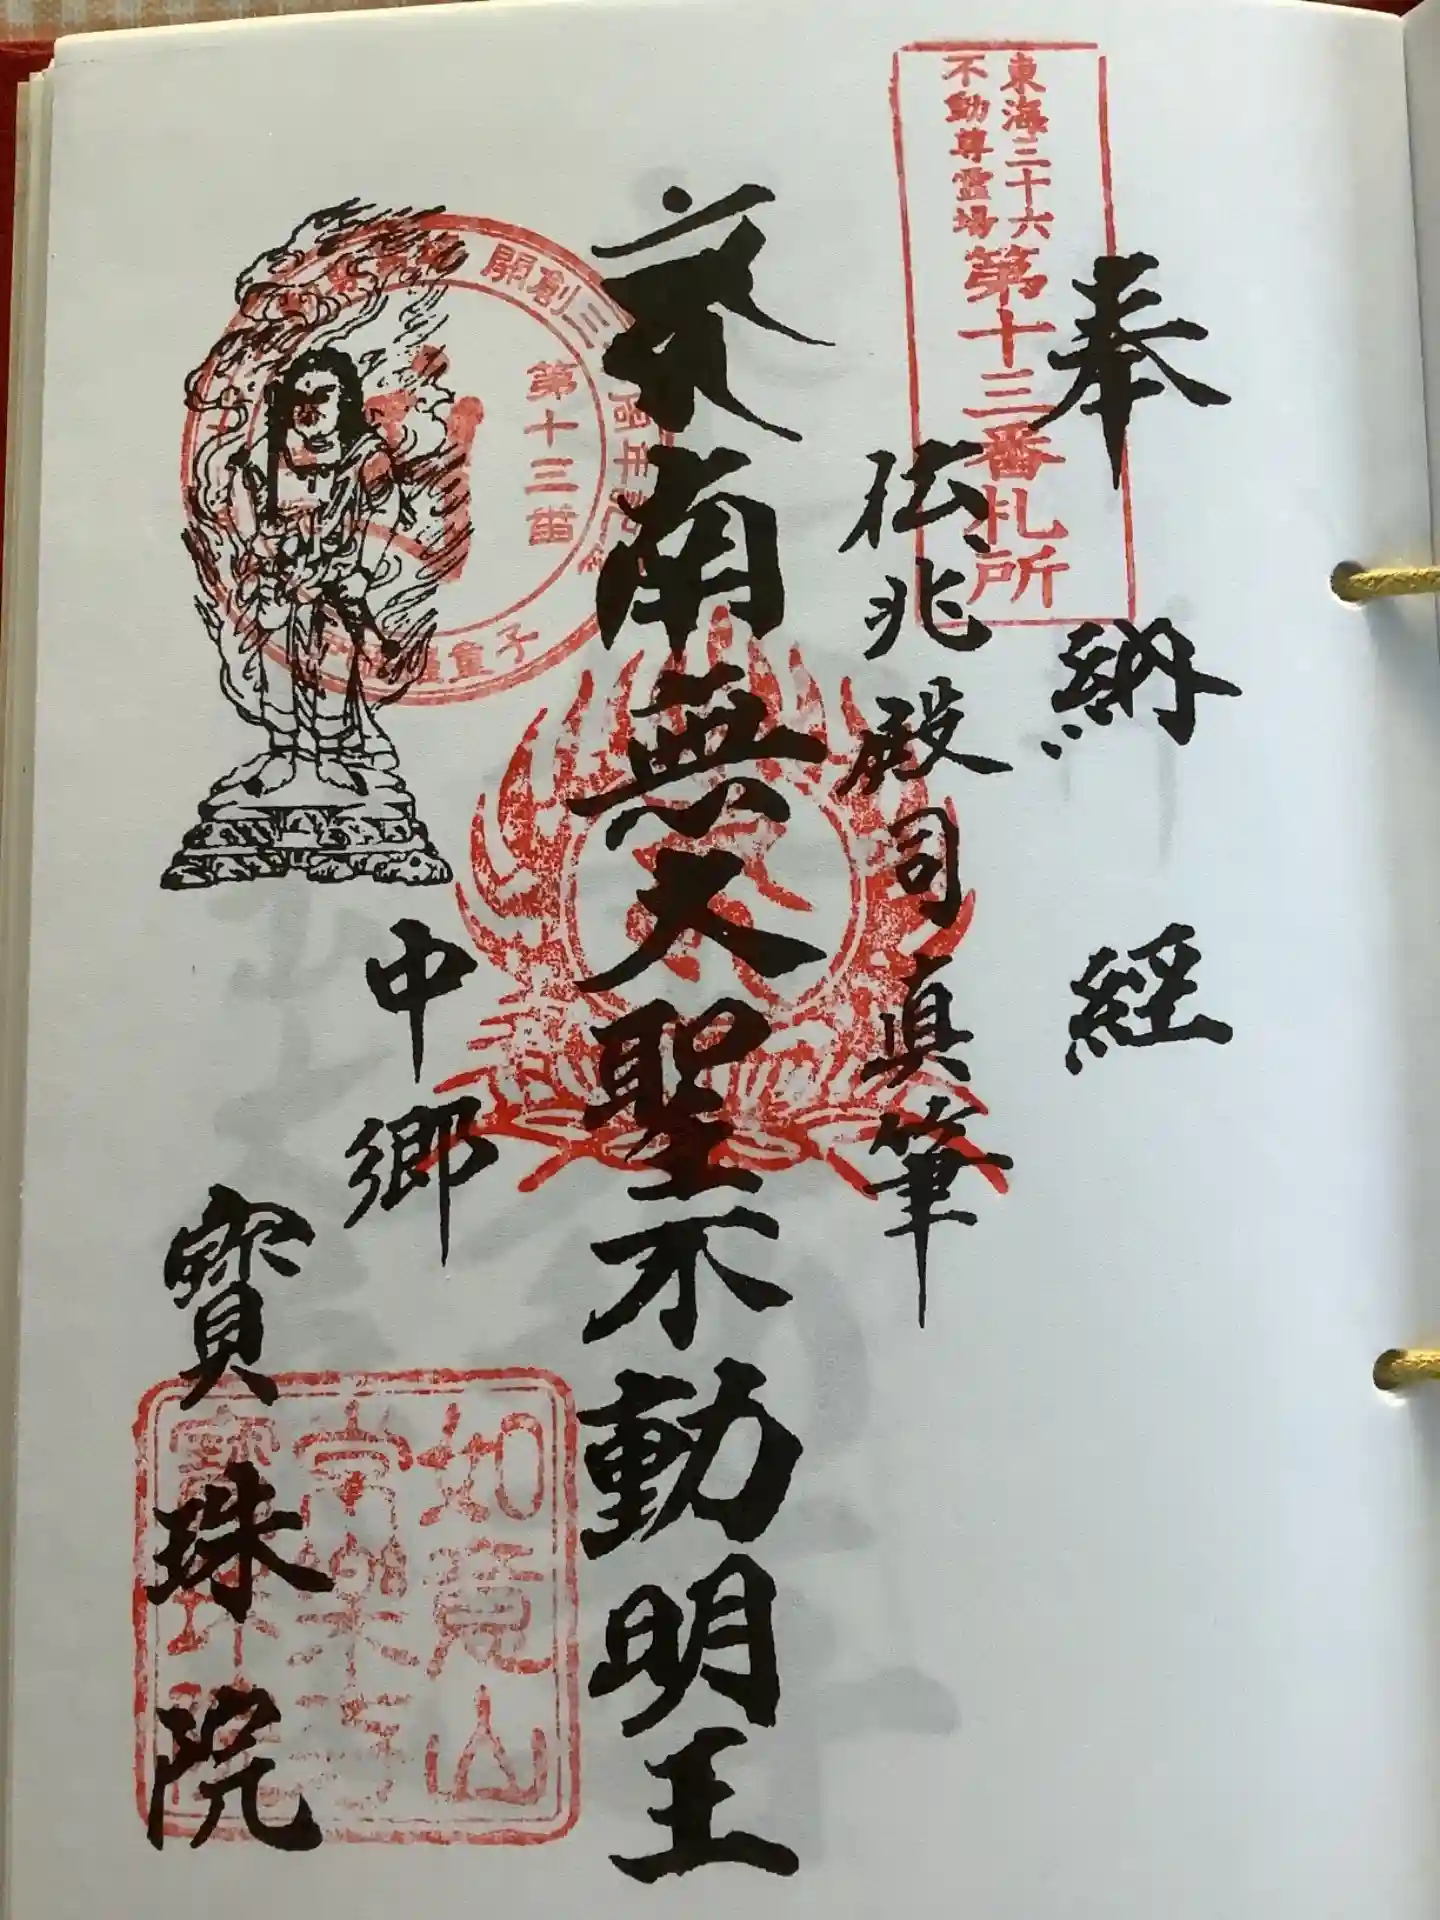 奉納経
東海三十六
不動尊霊場
第十三番札所
伝兆殿司真筆
南無大聖不動明王
開創三
第十三番
童子
中郷
寳珠院
如意山
常楽寺
寳珠院